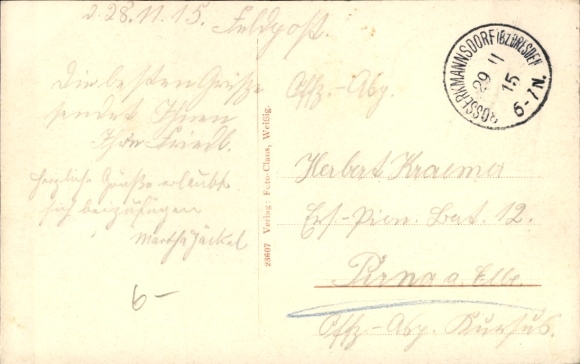 d. 28.11.15.
Feldpost.
Die besten Grüße
sendet Ihnen
Ihre Friedl.
Herzliche Grüße erlaubt
sich beizufügen
Martha Jäckel
6-
23607 Verlag: Foto-Claus, Weißig.
ROSSERKMANNSDORF (BZ DRESDEN
29 11
15
6-7N.
Offz.-Asp.
Herbert Kraemer
Ers.-Pion. Bat. 12.
Pirna a. Elbe.
Offz.-Asp. Kursus.